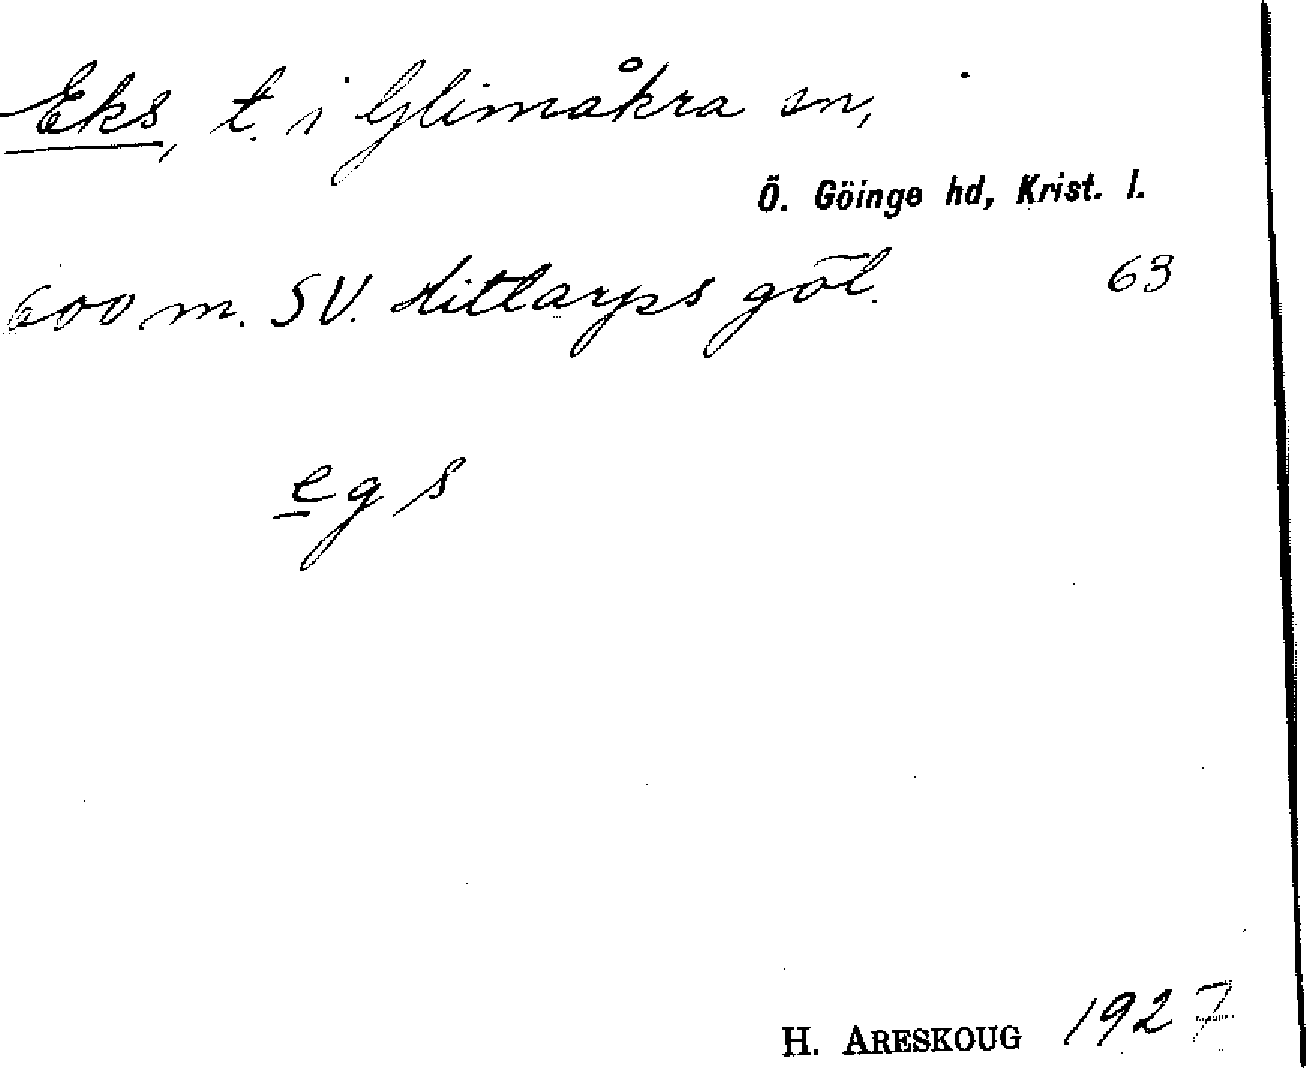 Eks, t. i Glimåkra sn,
Ö. Göinge hd, Krist. l.
600 m. SV. Hitlarps göl. 63
e g s
H. ARESKOUG 1927